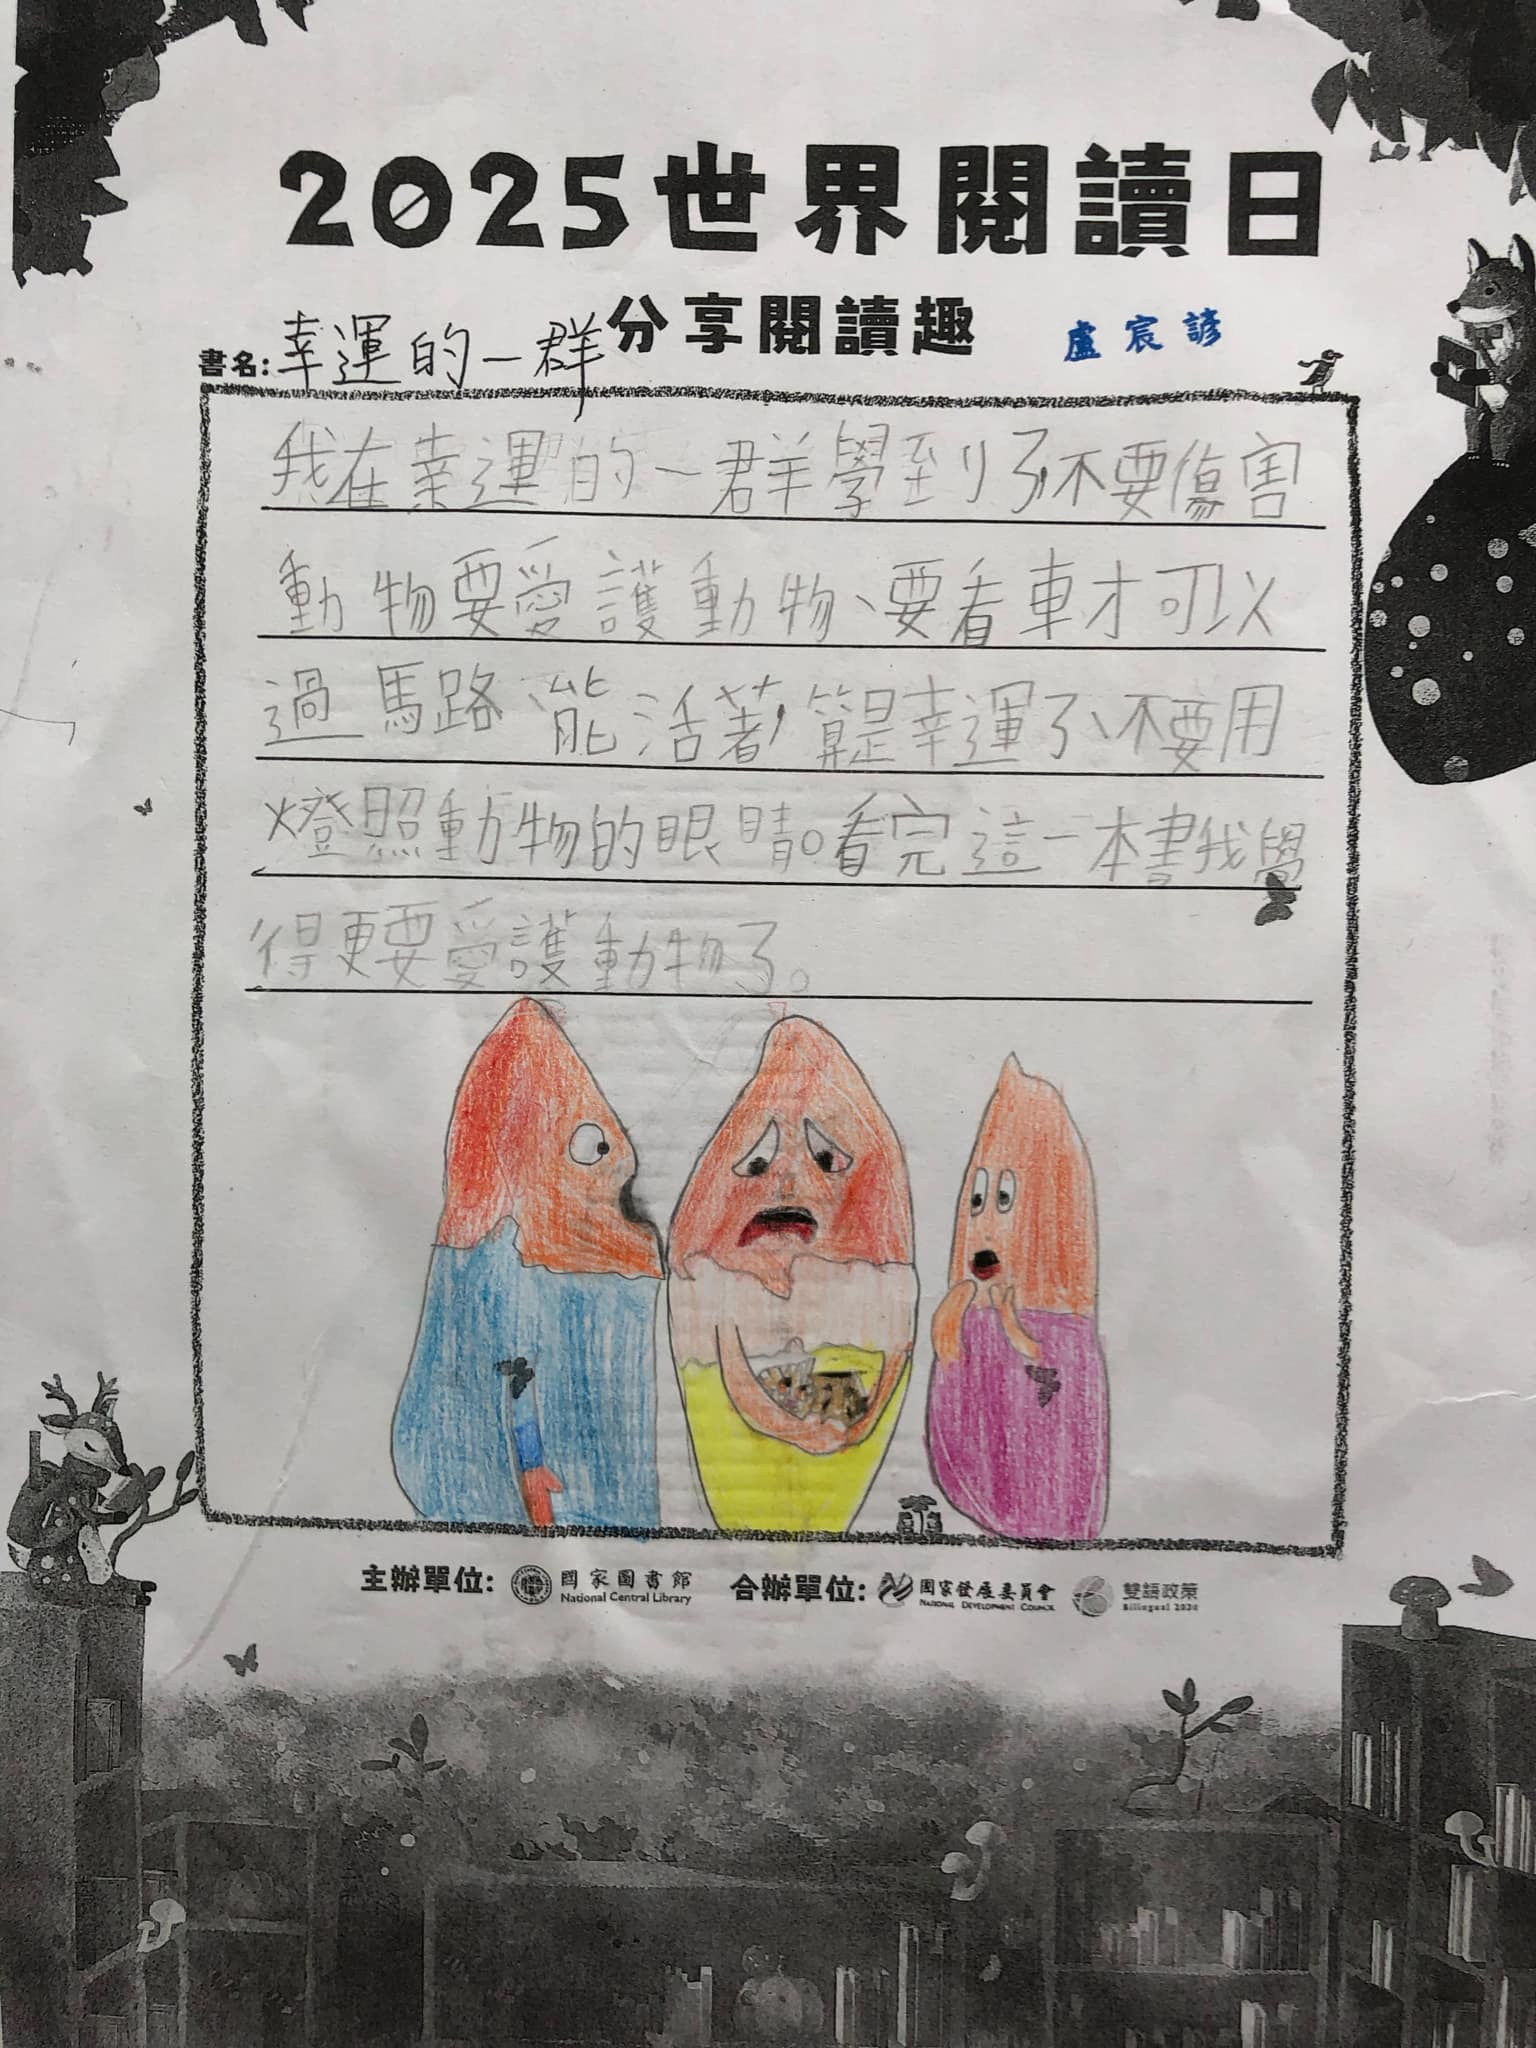 2025世界閱讀日
分享閱讀趣
盧宸諺
書名:幸運的一群
我在幸運的一群學到了不要傷害
動物要愛護動物、要看車才可以
過馬路、能活著算是幸運了、不要用
燈照動物的眼睛。看完這一本書我覺
得更要愛護動物了。
主辦單位: 國家圖書館 National Central Library 合辦單位: 國家發展委員會 National Development Council 雙語政策 Bilingual 2030